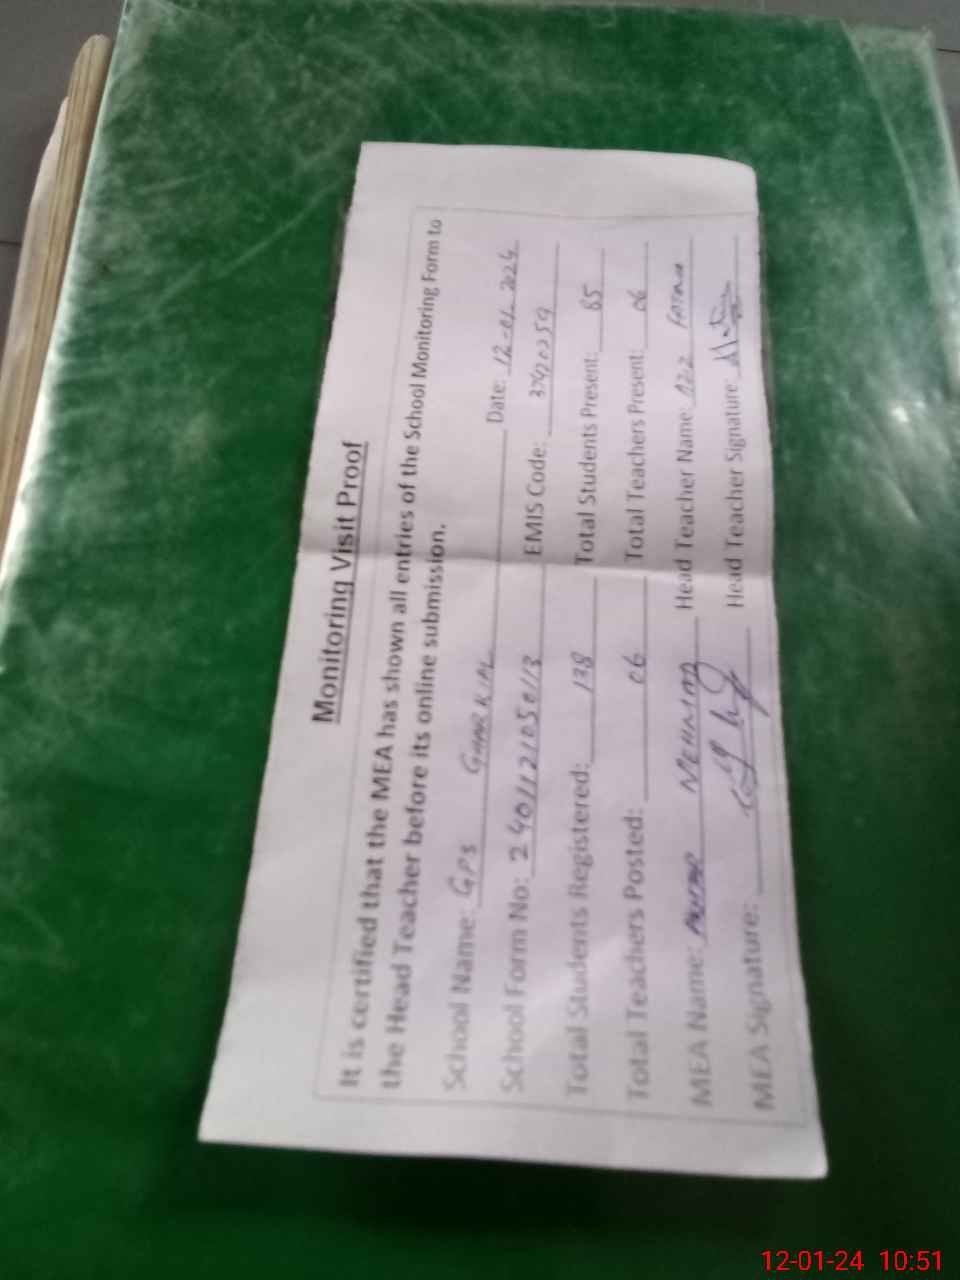 Monitoring Visit Proof
It is certified that the MEA has shown all entries of the School Monitoring Form to
the Head Teacher before its online submission.
School Name: GPS GHARKIAL Date: 12-01-2024
School Form No: 2401121050113 EMIS Code:
Total Students Registered: 138 Total Students Present: 85
Total Teachers Posted: 06 Total Teachers Present: 06
MEA Name: Head Teacher Name: Fatima
MEA Signature: Head Teacher Signature:
12-01-24 10:51